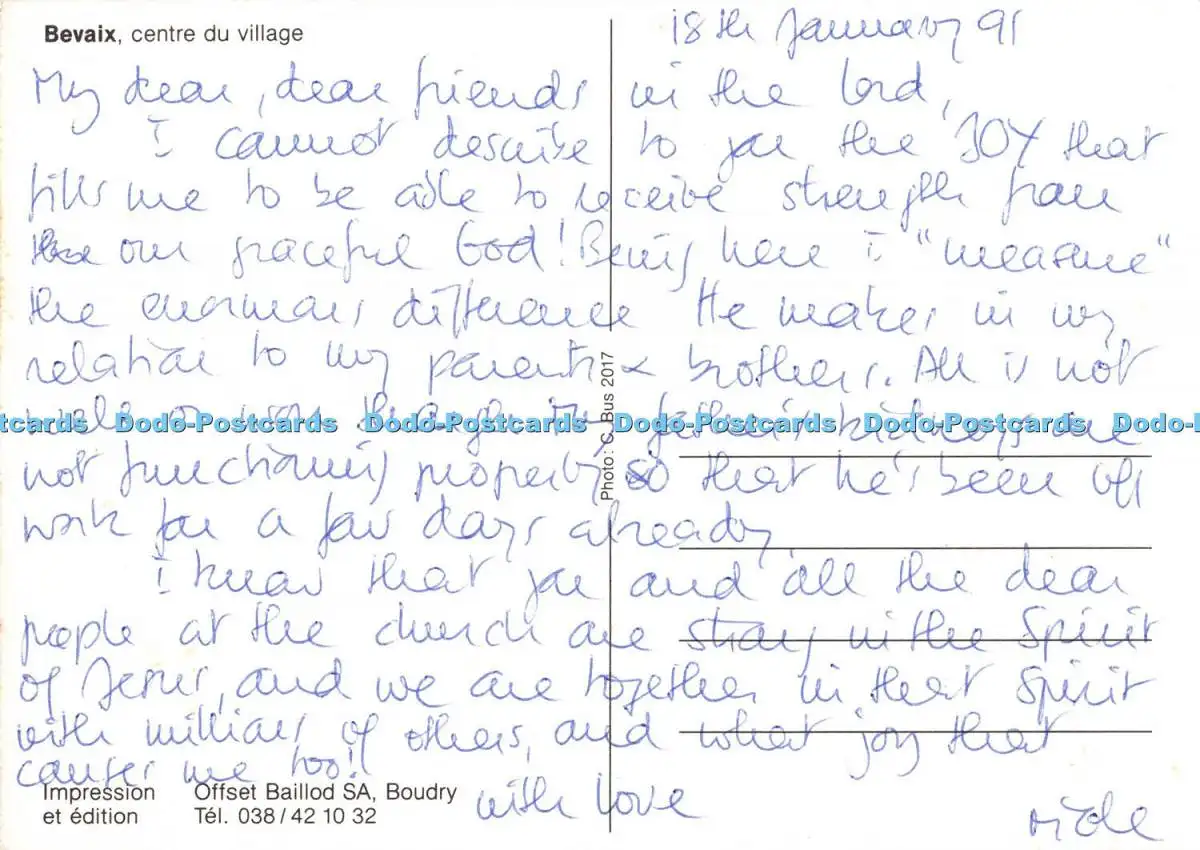 Bevaix, centre du village
18th January 91
My dear, dear friends in the Lord,
I cannot describe to you the JOY that
fills me to be able to receive strength from
our graceful God! Being here I "measure"
the enormous difference He makes in my
relation to my parents & brothers. All is not
well though my father's kidneys are
not functioning properly so that he's been off
work for a few days already
I know that you and all the dear
people at the church are strong in the Spirit
of Jesus, and we are together in that Spirit
with millions of others, and what joy that
causes me too!
with love
Photo: C. Bus 2017
Impression et édition
Offset Baillod SA, Boudry
Tél. 038/42 10 32
Dodo-Postcards Dodo-Postcards Dodo-Postcards Dodo-Postcards